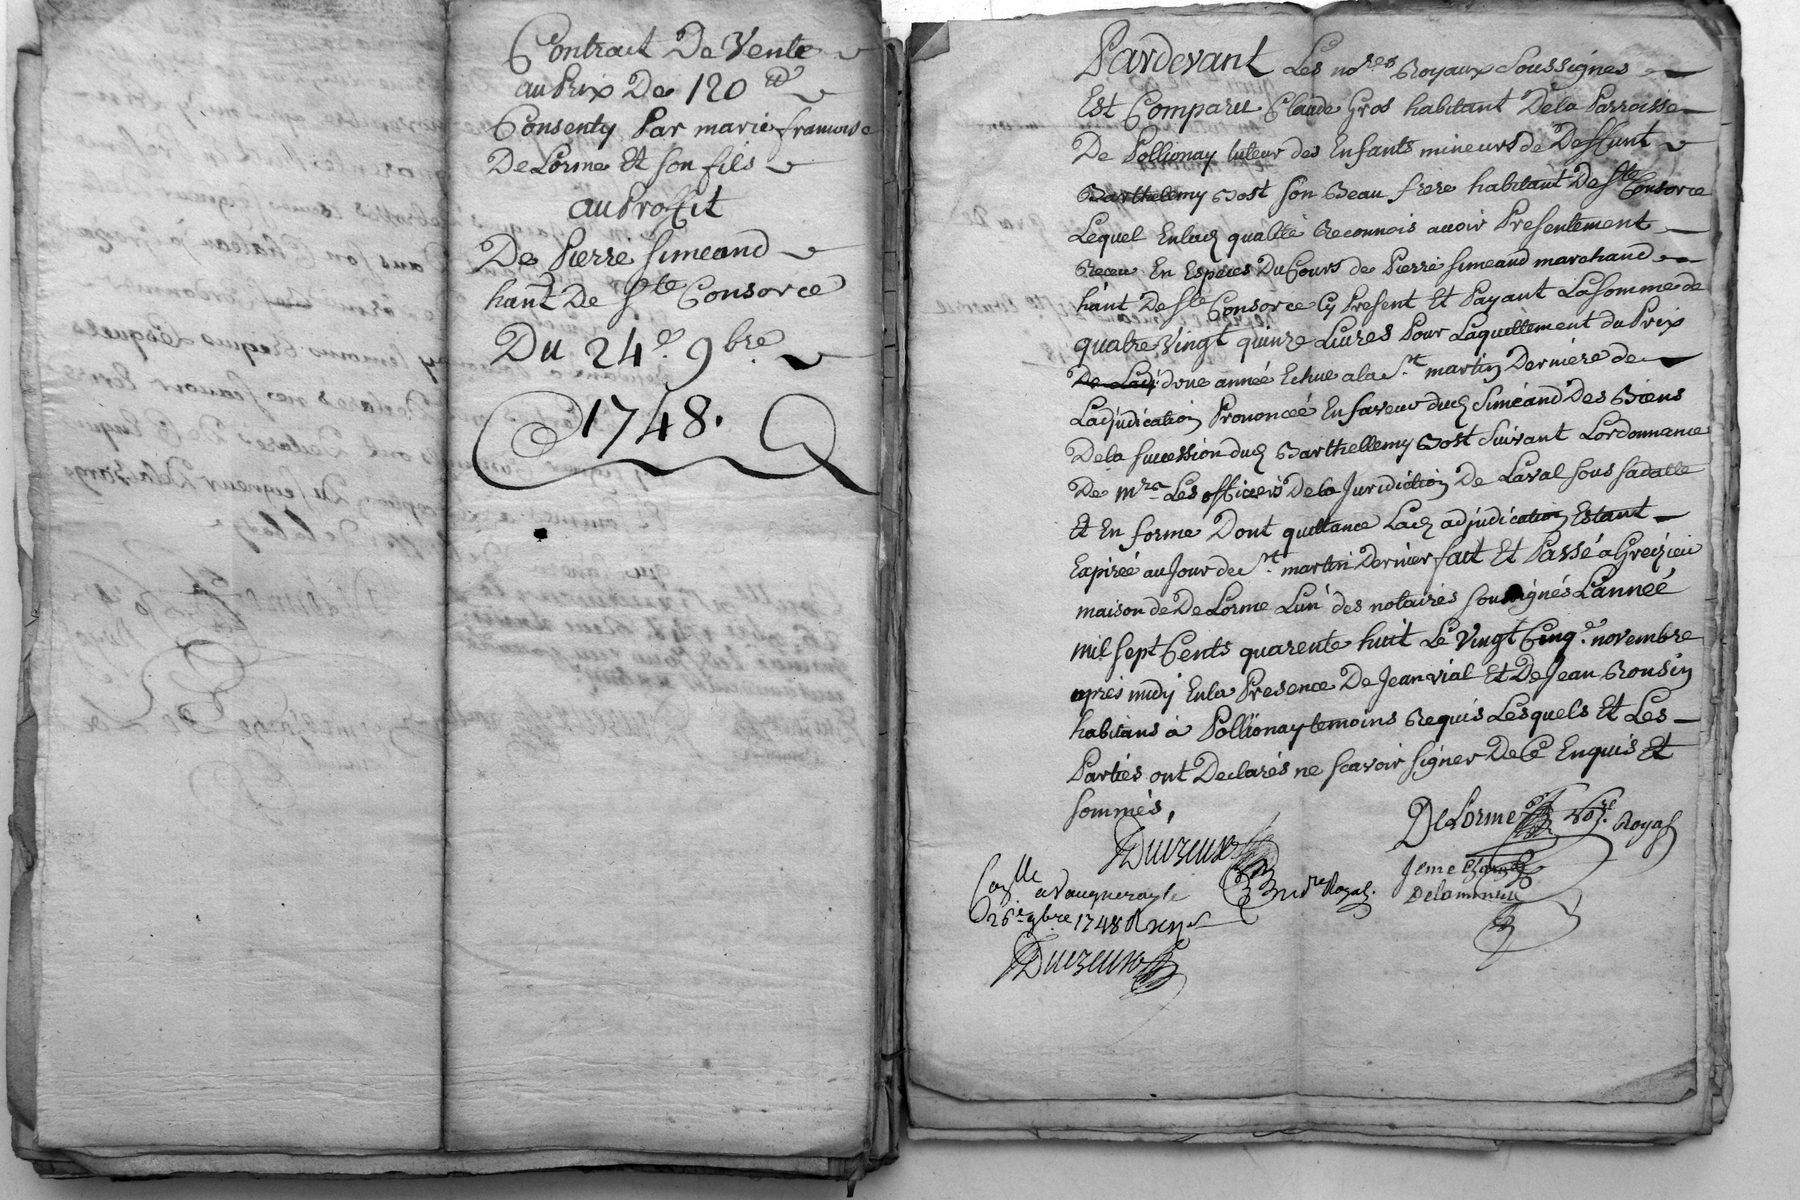 Contract De Vente
au Prix De 120 ₶
Consenty Par marie francoise
De Lorme Et son fils
au Proffit
De Pierre Simeand
hant De Ste Consorce
Du 24e. 9bre
1748.
Pardevant Les nores Royaux Soussignes
Est Comparu Claude Gros habitant Dela Parroisse
De Pollionay tuteur des Enfants mineurs de Deffunt
Barthelemy Bost son Beau frere habitant De Ste Consorce
Lequel Enlad qualité Reconnois avoir Presentement
Receu En Especes Du Cours de Pierre Simeand marchand
hant De Ste Consorce Cy Present Et Payant La Somme de
quatre Vingt quinze Livres Pour Laquittement du Prix
d'une année Echue a la St. martin Derniere de
Ladjudication Prononcéé En faveur dud Siméand Des Biens
Dela Succession dud Barthellemy Bost Suivant Lordonnance
De mrs Les officiers De la Juridiction De Laval sous sa datte
Et En forme Dont quittance Lad adjudication Estant
Expirée au Jour de St martin Dernier fait Et Passé a Grezieu
maison de De Lorme Lun des notaires soussignés L'année
mil sept Cents quarente huit Le Vingt Cinqe. novembre
apres midy Enla Presence De Jean vial Et De Jean Ronsin
habitans à Pollionay temoins Requis Lesquels Et Les
Parties ont Declarés ne scavoir signer De Ce Enquis Et
sommés,
DeLorme Nore. Royal
Duvzeux
nre Royal.
Conlle
a Vaugneray le
26e 9bre 1748 R xij s
Duvzeux